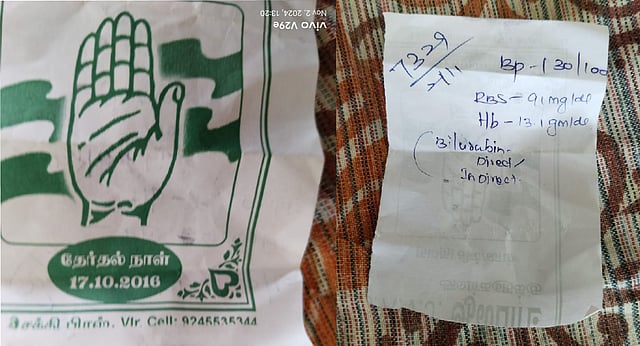 vivo V29e
Nov 2, 2024, 13:20
தேர்தல் நாள்
17.10.2016
பிரஸ், Vlr Cell: 9245535344
7329
7/11
Bp - 130/100
RBS - 91mg/dl
Hb - 13.1gm/dl
Bilurubin-
Direct/
InDirect.